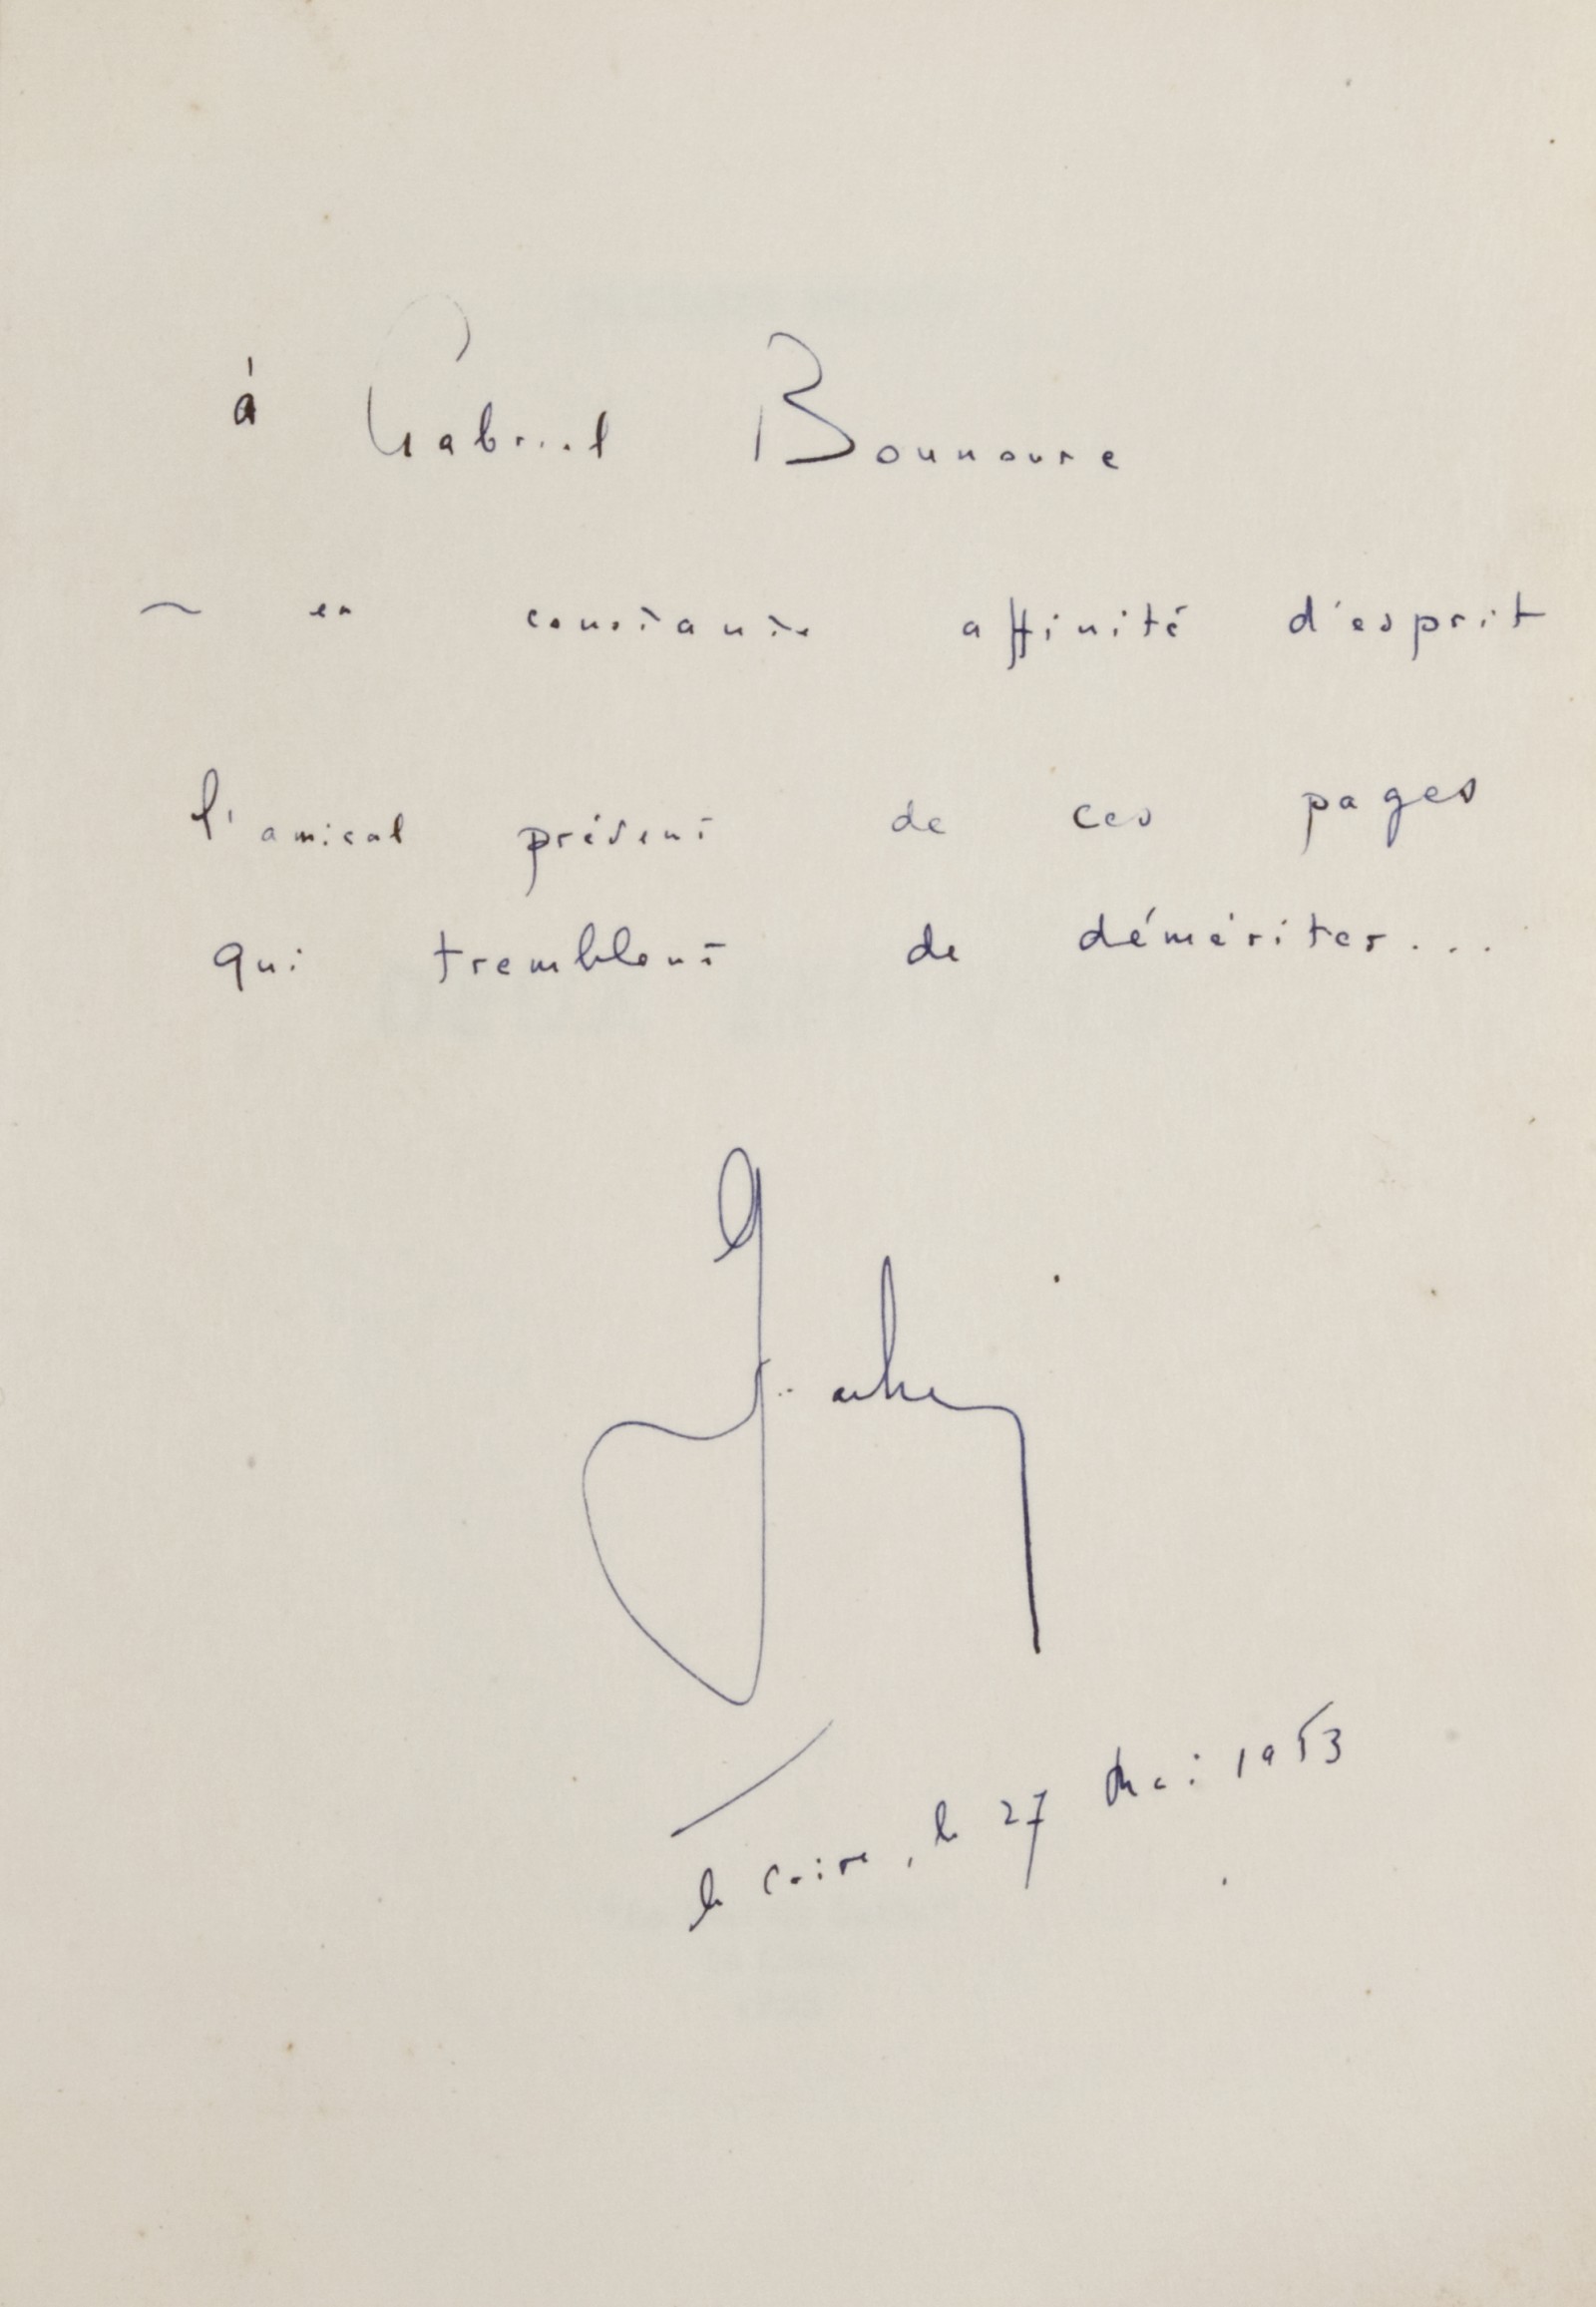 à Gabriel Bounoure
~ en constante affinité d'esprit
l'amical présent de ces pages
qui tremblent de démériter...
le Caire, le 27 Mai 1953